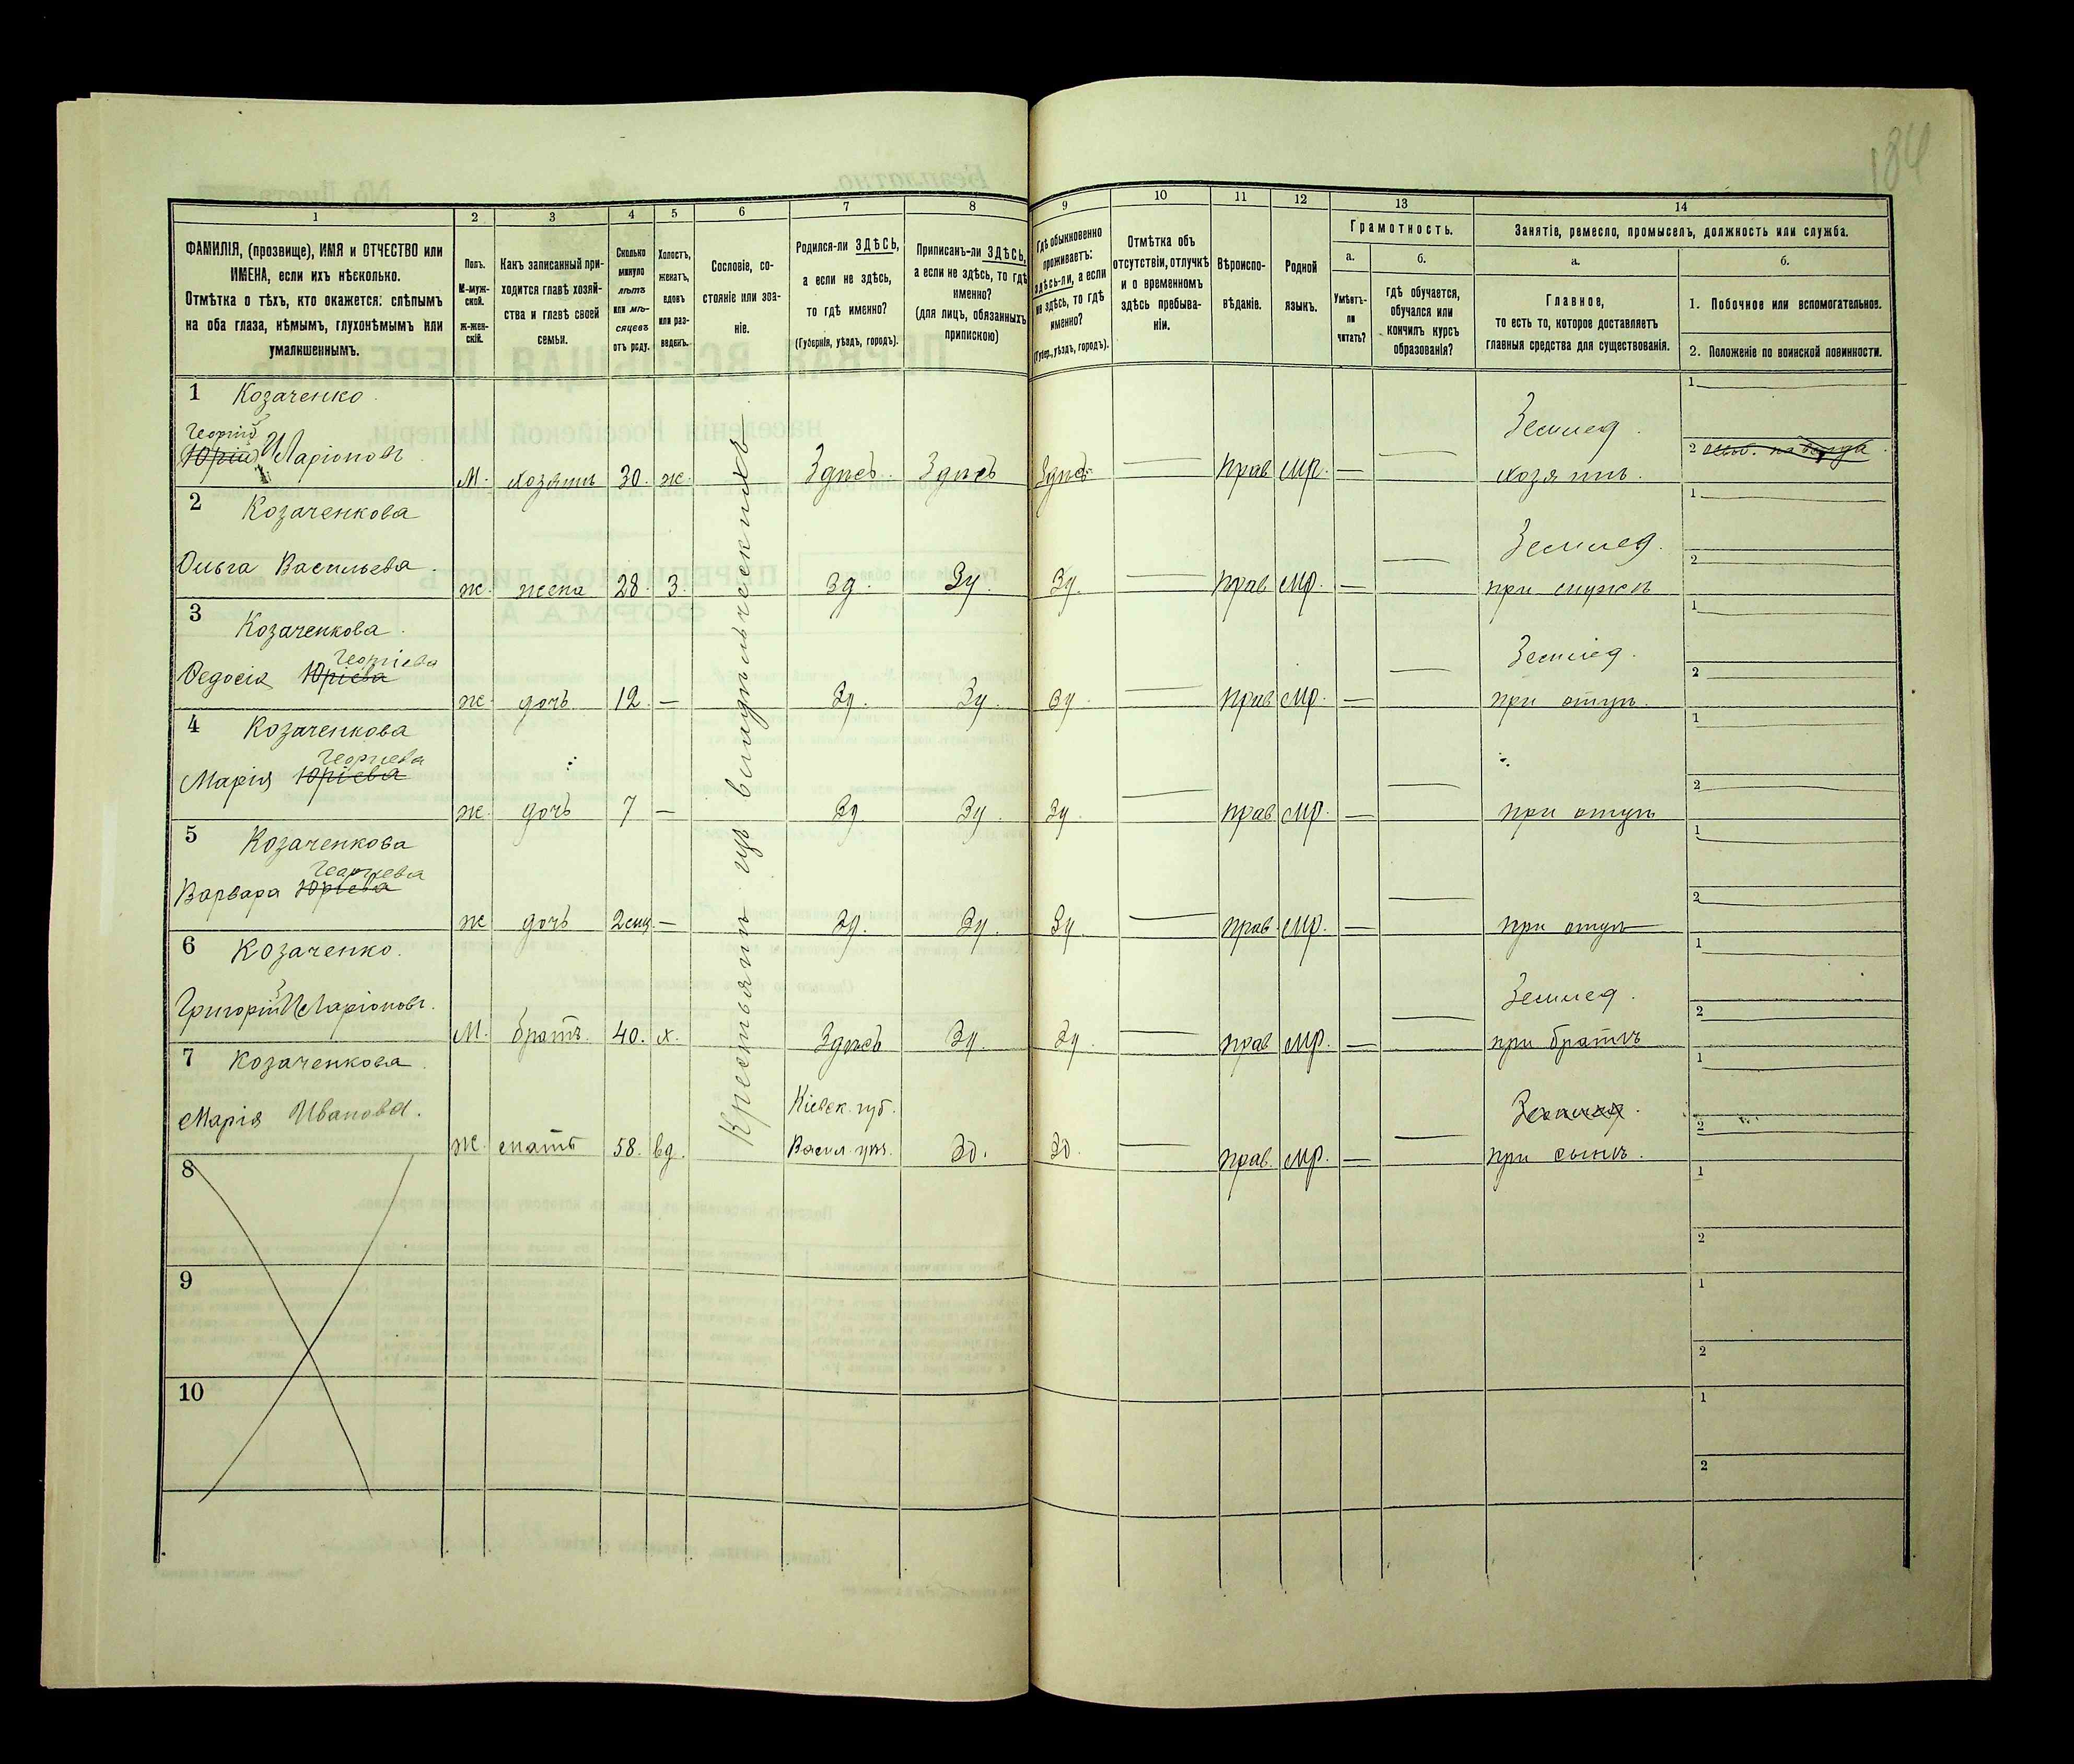 184
1 2 3 4 5 6 7 8 9 10 11 12 13 14
ФАМИЛІЯ, (прозвище), ИМЯ и ОТЧЕСТВО или
ИМЕНА, если ихъ нѣсколько.
Отмѣтка о тѣхъ, кто окажется: слѣпымъ
на оба глаза, нѣмымъ, глухонѣмымъ или
умалишеннымъ.
Полъ.
М-муж-
ской.
ж-жен-
скій.
Какъ записанный при-
ходится главѣ хозяй-
ства и главѣ своей
семьи.
Сколько
минуло
лѣтъ
или мѣ-
сяцевъ
отъ роду.
Холостъ,
женатъ,
вдовъ
или раз-
веденъ.
Сословіе, со-
стояніе или зва-
ніе.
Родился-ли ЗДѢСЬ,
а если не здѣсь,
то гдѣ именно?
(Губернія, уѣздъ, городъ).
Приписанъ-ли ЗДѢСЬ,
а если не здѣсь, то гдѣ
именно?
(для лицъ, обязанныхъ
припискою)
Гдѣ обыкновенно
проживаетъ:
здѣсь-ли, а если
не здѣсь, то гдѣ
именно?
(Губер., уѣздъ, городъ).
Отмѣтка объ
отсутствіи, отлучкѣ
и о временномъ
здѣсь пребыва-
ніи.
Вѣроиспо-
вѣданіе.
Родной
языкъ.
Грамотность.
а.
Умѣетъ-
ли
читать?
б.
гдѣ обучается,
обучался или
кончилъ курсъ
образованія?
Занятіе, ремесло, промыселъ, должность или служба.
а.
Главное,
то есть то, которое доставляетъ
главныя средства для существованія.
б.
1. Побочное или вспомогательное.
2. Положеніе по воинской повинности.
Крестьянинъ изъ владѣльческихъ
1 Козаченко
Георгій
Юрій Иларіоновъ
М. хозяинъ 30. ж. Здѣсь Здѣсь Здѣсь — прав мр. — —
Землед.
хозяинъ.
1
2
2 Козаченкова
Ольга Васильева
ж. жена 28. З. Зд. Зд. Зд. — прав мр. — —
Землед.
при мужѣ
1
2
3 Козаченкова
Георгіева
Федосія Юріева
ж. дочь 12. — Зд. Зд. Зд. — прав мр. — —
Землед.
при отцѣ.
1
2
4 Козаченкова
Георгіева
Марія Юріева
ж. дочь 7 — Зд Зд. Зд. — прав мр. — —
при отцѣ
1
2
5 Козаченкова
Георгіева
Варвара Юріева
ж дочь — Зд. Зд. Зд. — прав. мр. — —
при отцѣ
1
2
6 Козаченко.
Григорій Иларіоновъ.
М. братъ. 40. х. Здѣсь Зд. Зд. — прав мр. — —
Землед.
при братѣ
1
2
7 Козаченкова
Марія Иванова.
Ж. мать 58. вд.
Кіевск. губ.
Васил. уѣз. Зд. Зд. — прав. мр. — —
Землед.
при сынѣ.
1
2
8
1
2
9
1
2
10
1
2